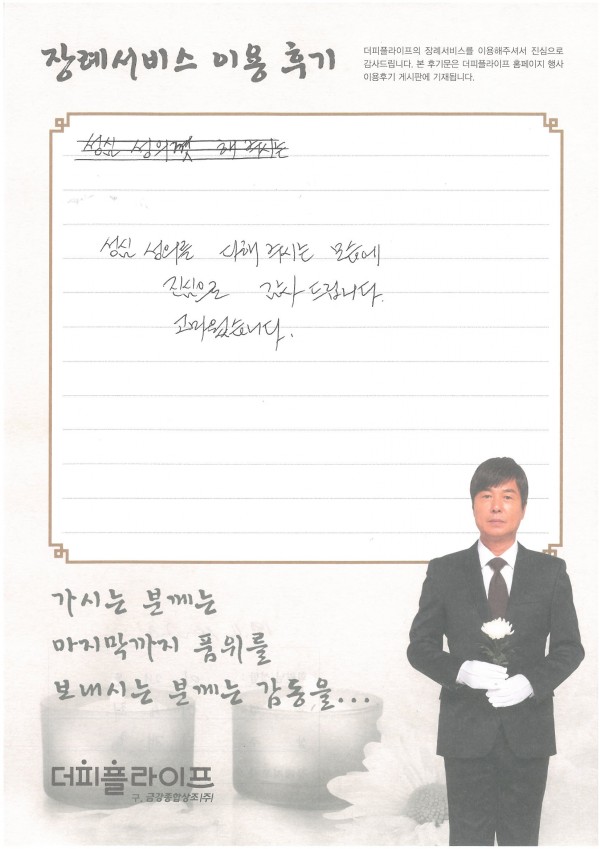 장례서비스 이용 후기
더피플라이프의 장례서비스를 이용해주셔서 진심으로
감사드립니다. 본 후기문은 더피플라이프 홈페이지 행사
이용후기 게시판에 기재됩니다.
성심 성의껏 해 주시는
성심 성의를 다해 주시는 모습에
진심으로 감사 드립니다.
고마웠습니다.
가시는 분께는
마지막까지 품위를
보내시는 분께는 감동을...
더피플라이프
구. 금강종합상조(주)